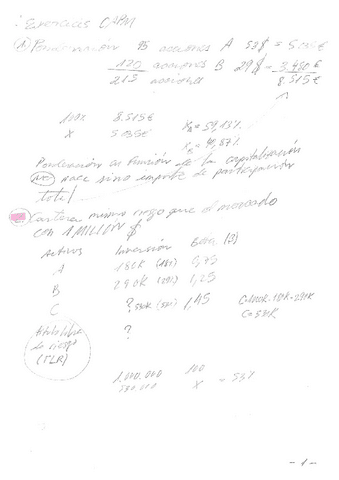 Ejercicios CAPM
① Ponderación 95 acciones A 53$ = 5.035€
120 acciones B 29$ = 3.480€
acciones 8.515€
100% 8.515€
X 5.035€ XA = 59,13%
XB = 40,87%
Ponderación en función de la capitalización
nace sino importe de participación
total
Cartera mismo riesgo que el mercado
con 1 MILLION $
Activos Inversión Beta (β)
A 180K (18%)
B 290K (29%) 1,25
C ? 530K (53%) 1,45
C = 530K
?
de riesgo
(TLR)
1.000.000 100
530.000 X = 53%
- 1 -